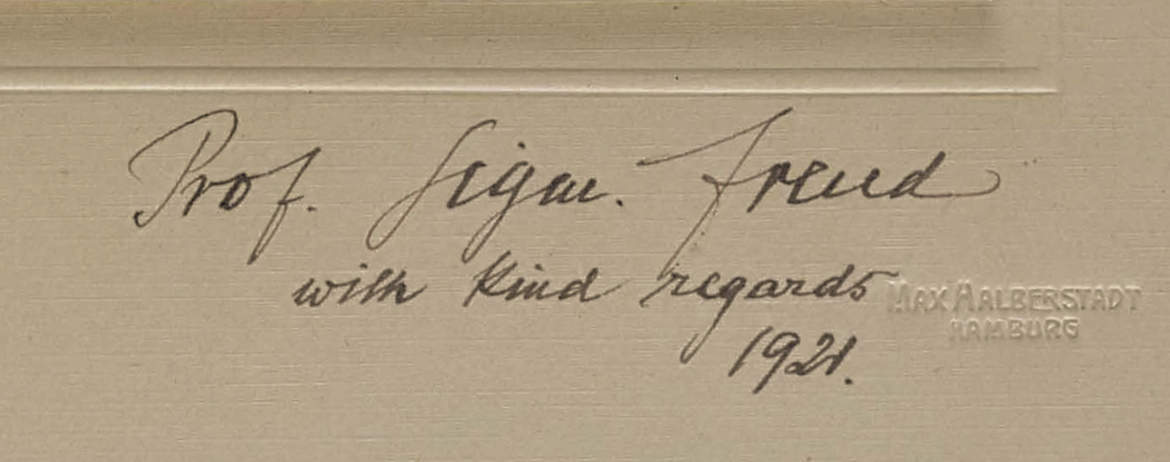 Prof. Sigm. Freud
with kind regards
1921.
MAX HALBERSTADT
HAMBURG